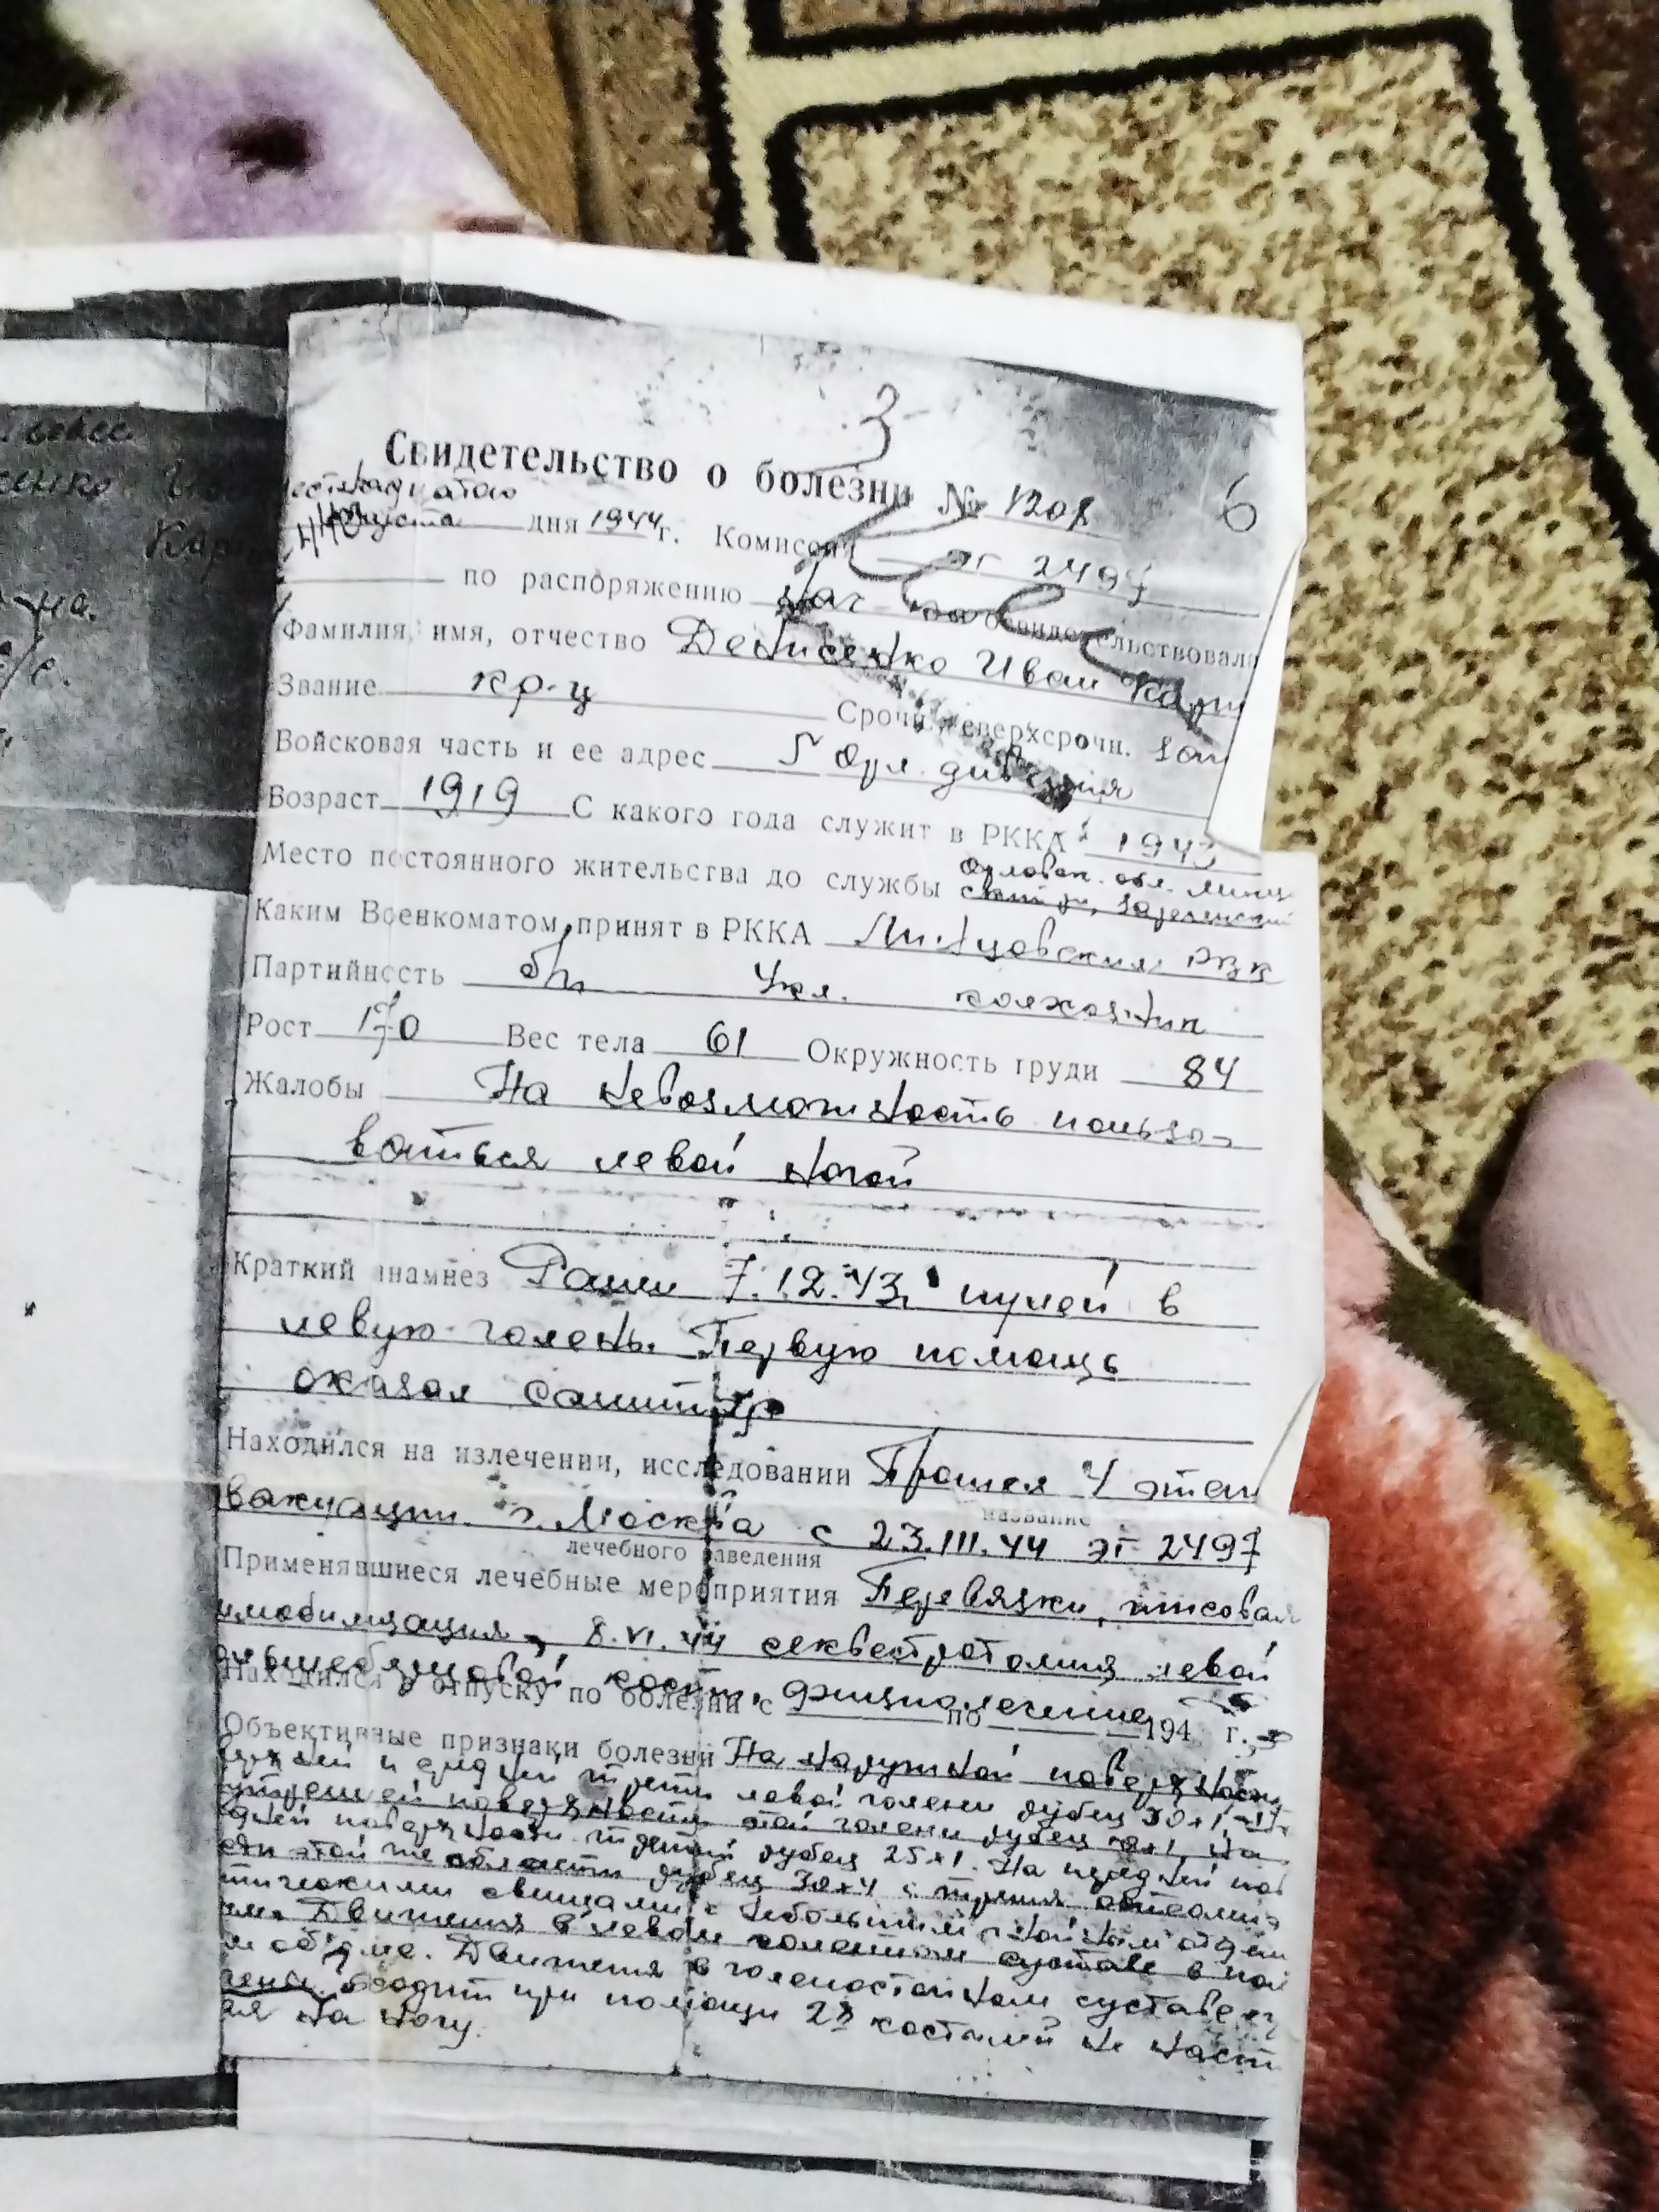 3
Свидетельство о болезни № 1208
6
августа дня 1944 г. Комиссией эг 2497
по распоряжению Нач освидетельствовал
Фамилия, имя, отчество Денисенко Иван Карп
Звание кр-ц
Срочн. сверхсрочн. зап
Войсковая часть и ее адрес 5 Орл. дивизия
Возраст 1919 С какого года служит в РККА 1943
Место постоянного жительства до службы Орловск. обл.
Каким Военкоматом принят в РККА РВК
Партийность б/п 4 кл. колхозник
Рост 170 Вес тела 61 Окружность груди 84
Жалобы На невозможность пользо-
ваться левой ногой
Краткий анамнез Ранен 7.12.43 пулей в
левую голень. Первую помощь
оказал санитар
Находился на излечении, исследовании Прошел 4 этап
название
вакуации г. Москва с 23.III.44 эг 2497
лечебного заведения
Применявшиеся лечебные мероприятия Перевязки, гипсовая
имобилизация, 8.VI.44 секвестротомия левой
большеберцовой кости, физиолечение
Находился в отпуску по болезни с по 194 г.
Объективные признаки болезни На наружной поверхности
и средней трети левой голени рубец 30×1,
поверхности этой голени рубец На
поверхности рубец 25×1. На передней пов
этой же области рубец 30×4 с тремя
свищами с небольшим гнойным отделя
Движения в левом коленном суставе в пол
м объеме. Движения в голеностопном суставе
Ходит при помощи 2х костылей не наст
ая на ногу.